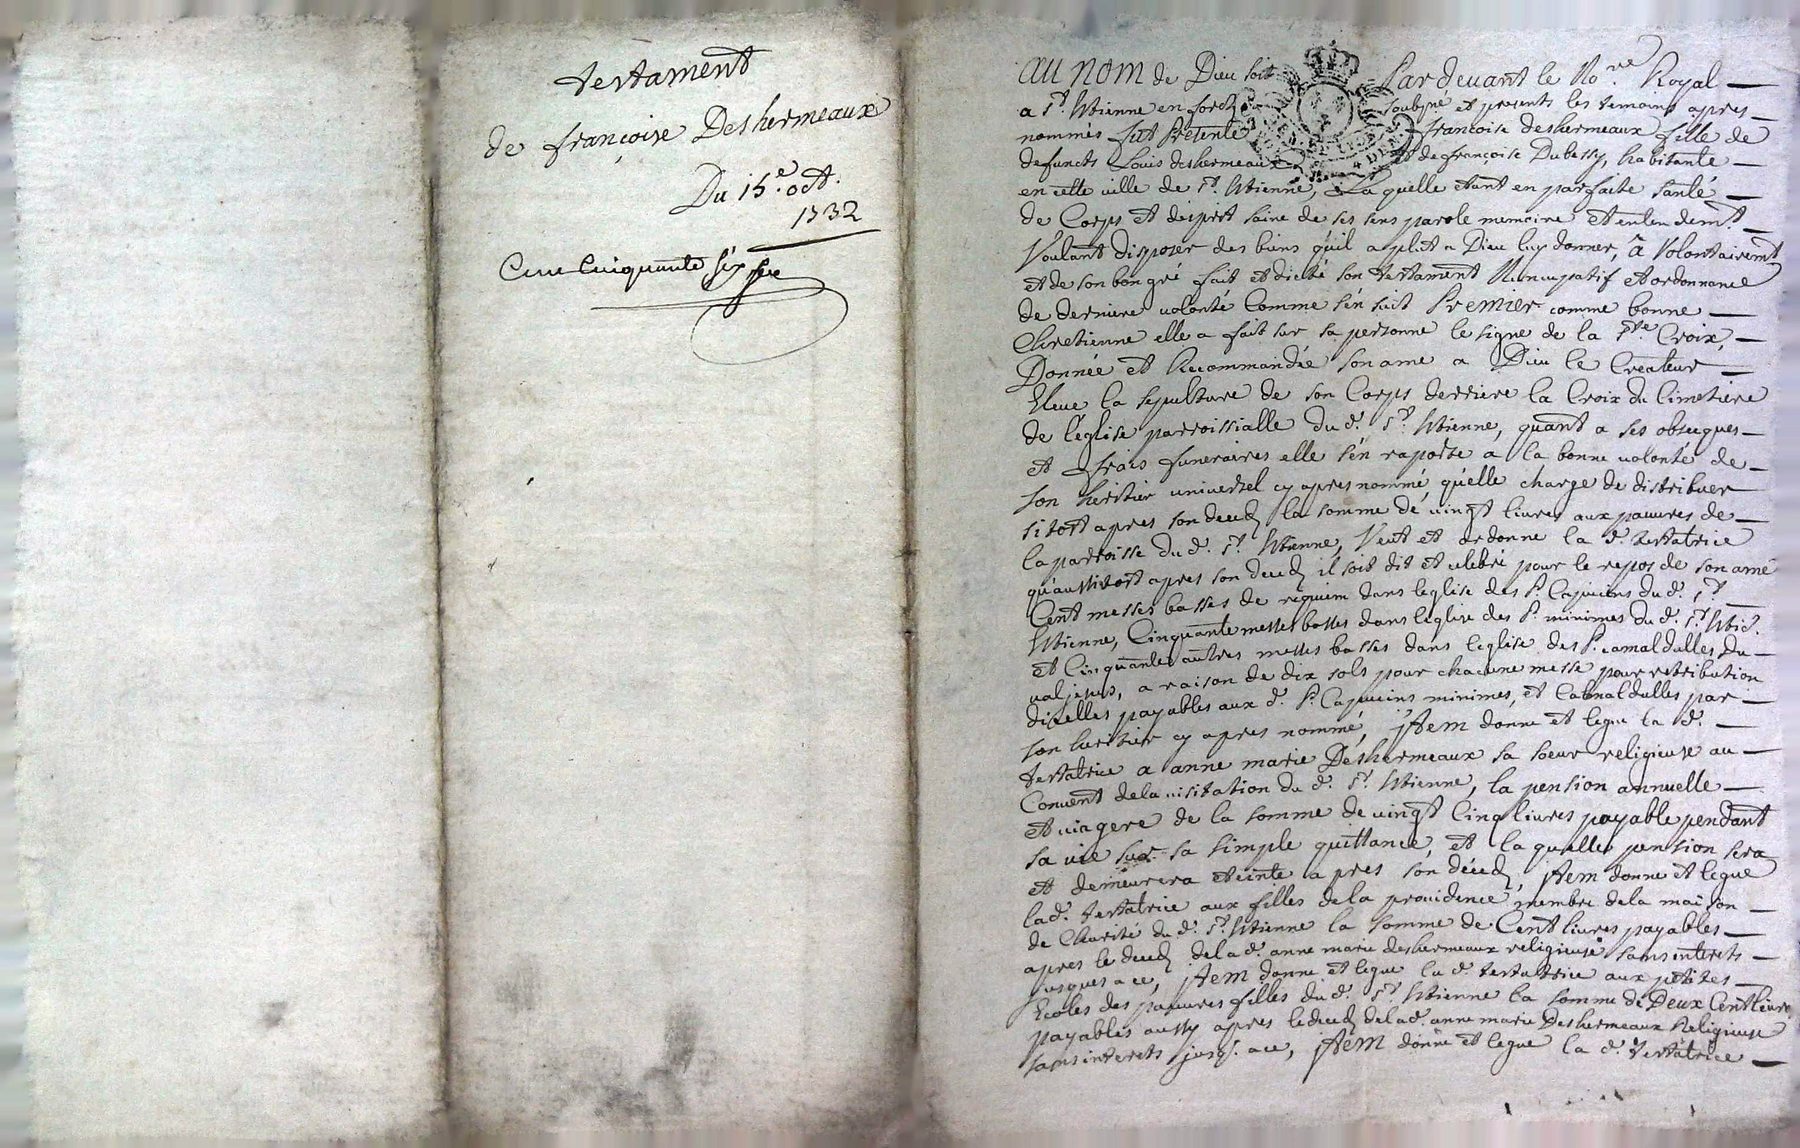 testament
de françoise Deshermeaux
Du 15.e oct.
1732
Cent Cinquante six
au nom de Dieu soit Pardevant le No.re Royal
a S.t Etienne en forest soubsné et presents les temoins apres
nommés fut Presente françoise deshermeaux fille de
defuncts Louis deshermeaux et de françoise Dubessy, habitante
en cette ville de S.t Etienne, La quelle etant en parfaite santé
de Corps et desprit saine de ses sens parole memoire et entendem.t
Voulant disposer des biens quil a plut a Dieu luy donner, a Volontairem.t
et de son bon gré fait et dicté son testament Nuncupatif et ordonnance
de derniere volonté Comme s'en suit Premier comme bonne
Chretienne elle a fait sur sa personne le signe de la S.te Croix,
Donnée et Recommandée son ame a Dieu le Createur
Eleue la sepulture de son Corps derriere la Croix du Cimetiere
de l'eglise parroissialle du d. S.t Etienne, quant a ses obseques
et frais funeraires elle s'en raporte a la bonne volonté de
son heritier universel cy apres nommé qu'elle charge de distribuer
sitost apres son deces la somme de vingt livres aux pauvres de
la parroisse du d. S.t Etienne, Veut et ordonne la d. testatrice
qu'aussitost apres son deces il soit dit et celebré pour le repos de son ame
Cent messes basses de requiem dans leglise des P. Capucins du d. S.t
Etienne, Cinquante messes basses dans l'eglise des P. minimes du d. S.t Etie.
et Cinquante autres messes basses dans leglise des P. camaldulles du
valjesus, a raison de dix sols pour chacune messe pour retribution
dicelles payables aux d. P. Capucins minimes, et Camaldulles par
son heritier cy apres nommé, Item donne et legue la d.
testatrice a anne marie Deshermeaux sa soeur religieuse au
Convent de la visitation du d. S.t Etienne, la pension annuelle
et viagere de la somme de vingt Cinq livres payable pendant
sa vie sur sa simple quittance, et la quelle pension sera
et demeurera eteinte apres son deces, Item donne et legue
la d. testatrice aux filles de la providence membre de la maison
de Charité du d. S.t Etienne la somme de Cent livres payables
apres le deces de la d. anne marie deshermeaux religieuse sans interets
jusques a ce, Item donne et legue la d. testatrice aux petites
Ecoles des pauvres filles du d. S.t Etienne la somme de Deux Cent livres
payables aussy apres le deces de la d. anne marie Deshermeaux Religieuse
sans interets jusq. a ce, Item donne et legue la d. testatrice